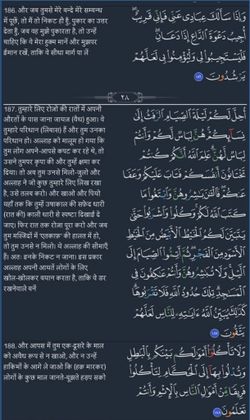 186. और जब तुमसे मेरे बन्दे मेरे सम्बन्ध
में पूछें, तो मैं तो निकट ही हूँ, पुकार का उत्तर
देता हूँ, जब वह मुझे पुकारता है, तो उन्हें
चाहिए कि वे मेरा हुक्म मानें और मुझपर
ईमान रखें, ताकि वे सीधा मार्ग पा लें
وَإِذَا سَأَلَكَ عِبَادِى عَنِّى فَإِنِّى قَرِيبٌ
أُجِيبُ دَعْوَةَ ٱلدَّاعِ إِذَا دَعَانِ
فَلْيَسْتَجِيبُوا۟ لِى وَلْيُؤْمِنُوا۟ بِى لَعَلَّهُمْ
يَرْشُدُونَ ١٨٦
٢٨
187. तुम्हारे लिए रोज़ों की रातों में अपनी
औरतों के पास जाना जायज़ (वैध) हुआ। वे
तुम्हारे परिधान (लिबास) हैं और तुम उनका
परिधान हो। अल्लाह को मालूम हो गया कि
तुम लोग अपने-आपसे कपट कर रहे थे, तो
उसने तुमपर कृपा की और तुम्हें क्षमा कर
दिया। तो अब तुम उनसे मिलो-जुलो और
अल्लाह ने जो कुछ तुम्हारे लिए लिख रखा
है, उसे तलब करो। और खाओ और पियो
यहाँ तक कि तुम्हें उषाकाल की सफ़ेद धारी
(रात की) काली धारी से स्पष्टतः दिखाई दे
जाए। फिर रात तक रोज़ा पूरा करो और जब
तुम मस्जिदों में 'एतकाफ़' की हालत में हो,
तो तुम उनसे न मिलो। ये अल्लाह की सीमाएँ
हैं। अतः इनके निकट न जाना। इस प्रकार
अल्लाह अपनी आयतें लोगों के लिए
खोल-खोलकर बयान करता है, ताकि वे डर
रखनेवाले बनें
أُحِلَّ لَكُمْ لَيْلَةَ ٱلصِّيَامِ ٱلرَّفَثُ إِلَىٰ
نِسَآئِكُمْ هُنَّ لِبَاسٌ لَّكُمْ وَأَنتُمْ
لِبَاسٌ لَّهُنَّ عَلِمَ ٱللَّهُ أَنَّكُمْ كُنتُمْ
تَخْتَانُونَ أَنفُسَكُمْ فَتَابَ عَلَيْكُمْ وَعَفَا
عَنكُمْ فَٱلْـَٰٔنَ بَـٰشِرُوهُنَّ وَٱبْتَغُوا۟ مَا
كَتَبَ ٱللَّهُ لَكُمْ وَكُلُوا۟ وَٱشْرَبُوا۟ حَتَّىٰ
يَتَبَيَّنَ لَكُمُ ٱلْخَيْطُ ٱلْأَبْيَضُ مِنَ ٱلْخَيْطِ
ٱلْأَسْوَدِ مِنَ ٱلْفَجْرِ ثُمَّ أَتِمُّوا۟ ٱلصِّيَامَ إِلَى
ٱلَّيْلِ وَلَا تُبَـٰشِرُوهُنَّ وَأَنتُمْ عَـٰكِفُونَ فِى
ٱلْمَسَـٰجِدِ تِلْكَ حُدُودُ ٱللَّهِ فَلَا تَقْرَبُوهَا
كَذَٰلِكَ يُبَيِّنُ ٱللَّهُ ءَايَـٰتِهِۦ لِلنَّاسِ لَعَلَّهُمْ
يَتَّقُونَ ١٨٧
188. और आपस में तुम एक-दूसरे के माल
को अवैध रूप से न खाओ, और न उन्हें
हाकिमों के आगे ले जाओ कि (हक़ मारकर)
लोगों के कुछ माल जानते-बूझते हड़प सको
وَلَا تَأْكُلُوٓا۟ أَمْوَٰلَكُم بَيْنَكُم بِٱلْبَـٰطِلِ
وَتُدْلُوا۟ بِهَآ إِلَى ٱلْحُكَّامِ لِتَأْكُلُوا۟
فَرِيقًا مِّنْ أَمْوَٰلِ ٱلنَّاسِ بِٱلْإِثْمِ وَأَنتُمْ
تَعْلَمُونَ ١٨٨